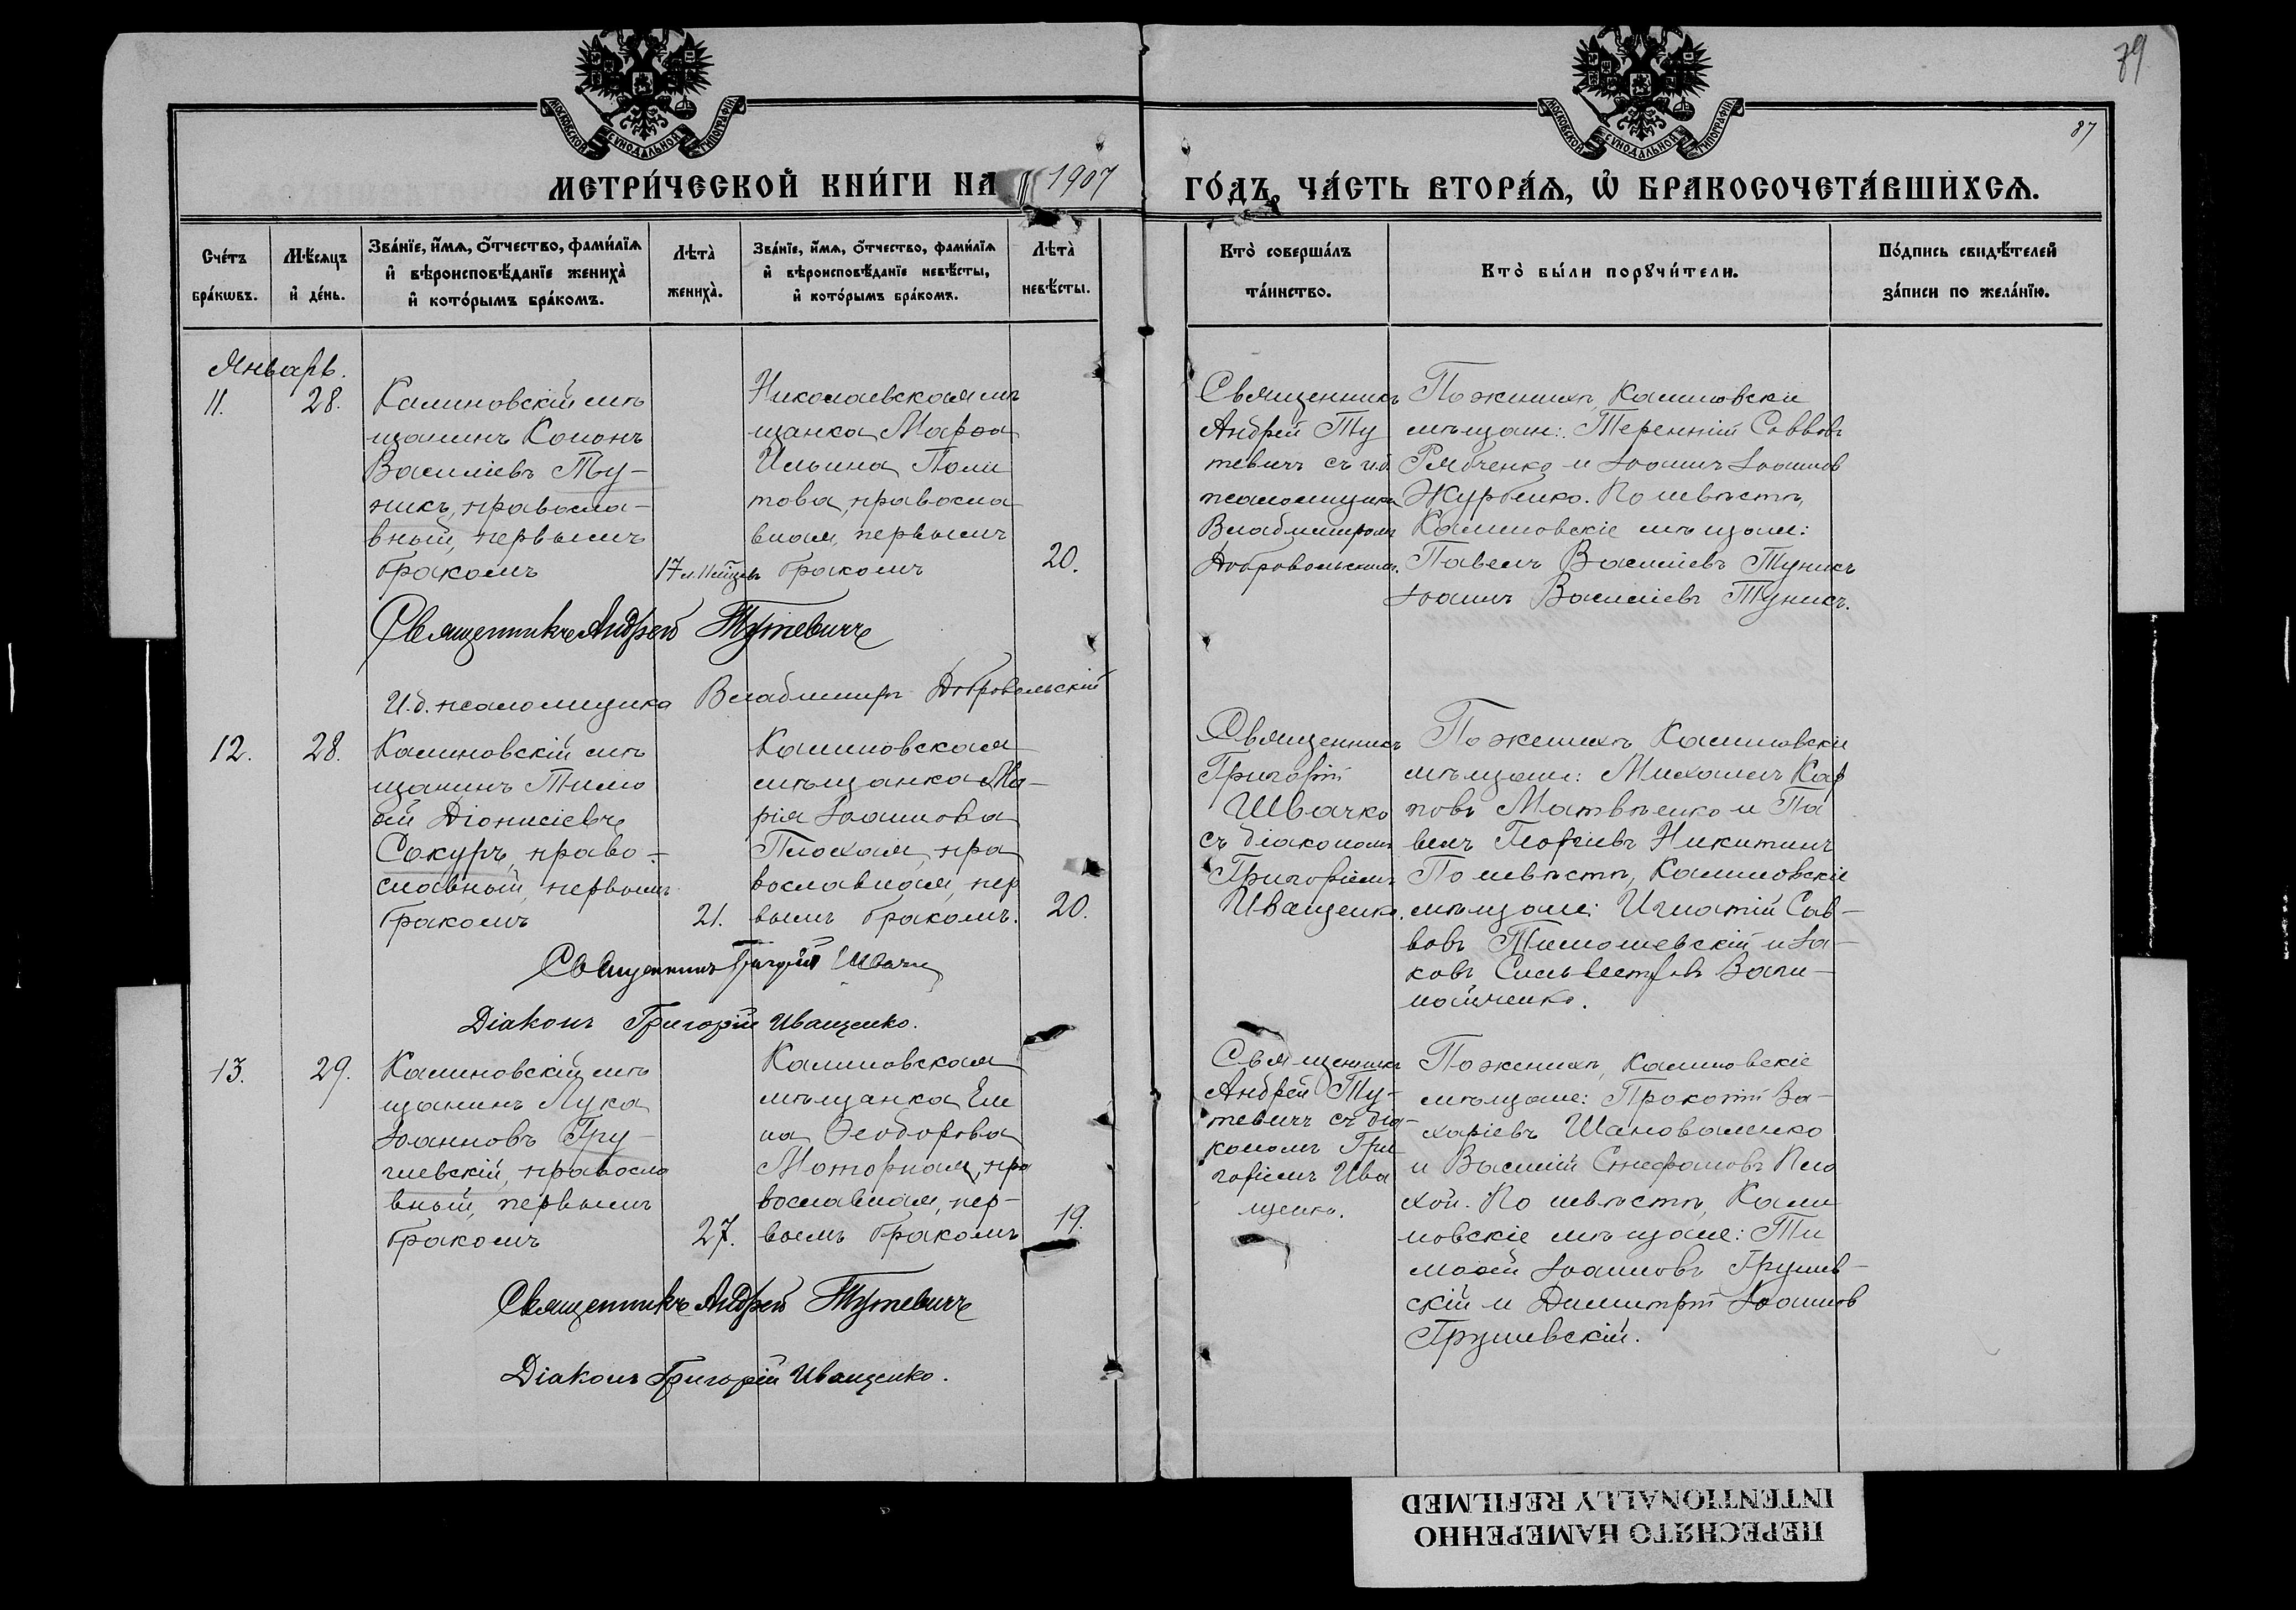 79
87
МОСКОВСКОЙ СУНОДАЛЬНОЙ ТИПОГРАФІИ
МОСКОВСКОЙ СУНОДАЛЬНОЙ ТИПОГРАФІИ
МЕТРИ́ЧЕСКОЙ КНИ́ГИ НА 1907 ГО́ДЪ, ЧА́СТЬ ВТОРА́Ѧ, Ѽ БРАКОСОЧЕТА́ВШИХСѦ.
Сче́тъ
бра́кѡвъ.
Мѣ́сѧцъ
и҆ де́нь.
Зва́нїе, и҆́мѧ, о҆́тчество, фами́лїѧ
и҆ вѣроисповѣ́данїе жениха̀
и҆ кото́рымъ бра́комъ.
Лѣта̀
жениха̀.
Зва́нїе, и҆́мѧ, о҆́тчество, фами́лїѧ
и҆ вѣроисповѣ́данїе невѣ́сты,
и҆ кото́рымъ бра́комъ.
Лѣта̀
невѣ́сты.
Кто̀ соверша́лъ
та́инство.
Кто̀ бы́ли порꙋчи́тели.
По́дпись свидѣ́телей
за́писи по жела́нїю.
Январь.
11.
28.
Калиновскій мѣ
щанинъ Кононъ
Василіевъ Ту-
никъ, правосла-
вный, первымъ
бракомъ
17
Николаевская мѣ
щанка Марѳа
Ильина Поли
това, правосла
вная, первымъ
бракомъ
20.
Священникъ
Андрей Ту
тевичъ съ и.д.
псаломщика
Владимиромъ
Добровольскимъ.
По женихѣ, Калиновскіе
мѣщане: Терентій Саввовъ
Рябченко и Іоаннъ Іоаннов
Журбенко. По невѣстѣ,
Калиновскіе мѣщане:
Павелъ Василіевъ Туникъ
Іоаннъ Василіевъ Туникъ.
Священникъ Андрей Тутевичъ
И.д. псаломщика Владимиръ Добровольскій
12.
28.
Калиновскій мѣ
щанинъ Тимо
ѳей Діонисіевъ
Сокуръ, право-
славный, первымъ
бракомъ
21.
Калиновская
мѣщанка Ма-
рія Іоаннова
Плохая, пра
вославная, пер
вымъ бракомъ.
20.
Священникъ
Григорій
Швачко
съ діакономъ
Григоріемъ
Иващенко.
По женихѣ Калиновскіе
мѣщане: Михаилъ Кар
повъ Матвѣенко и Па
велъ Георгіевъ Никитинъ
По невѣстѣ, Калиновскіе
мѣщане: Игнатій Сав-
вовъ Тимошевскій и Іа-
ковъ Сильвестровъ Запи-
найченко.
Священникъ Григорій Швачко
Діаконъ Григорій Иващенко.
13.
29.
Калиновскій мѣ
щанинъ Лука
Іоанновъ Гру-
шевскій, правосла
вный, первымъ
бракомъ
27.
Калиновская
мѣщанка Еле
на Ѳеодорова
Моторная, пра
вославная, пер-
вымъ бракомъ
19.
Священникъ
Андрей Ту-
тевичъ съ діа-
кономъ Гри
горіемъ Ива
щенко.
По женихѣ, Калиновскіе
мѣщане: Прокопій За-
харіевъ Шаповаленко
и Василій Стефановъ Пло
хой. По невѣстѣ, Кали
новскіе мѣщане: Ти
моѳей Іоанновъ Грушев-
скій и Димитрій Іоаннов
Грушевскій.
Священникъ Андрей Тутевичъ
Діаконъ Григорій Иващенко.
ПЕРЕСНЯТО НАМЕРЕННО
INTENTIONALLY REFILMED